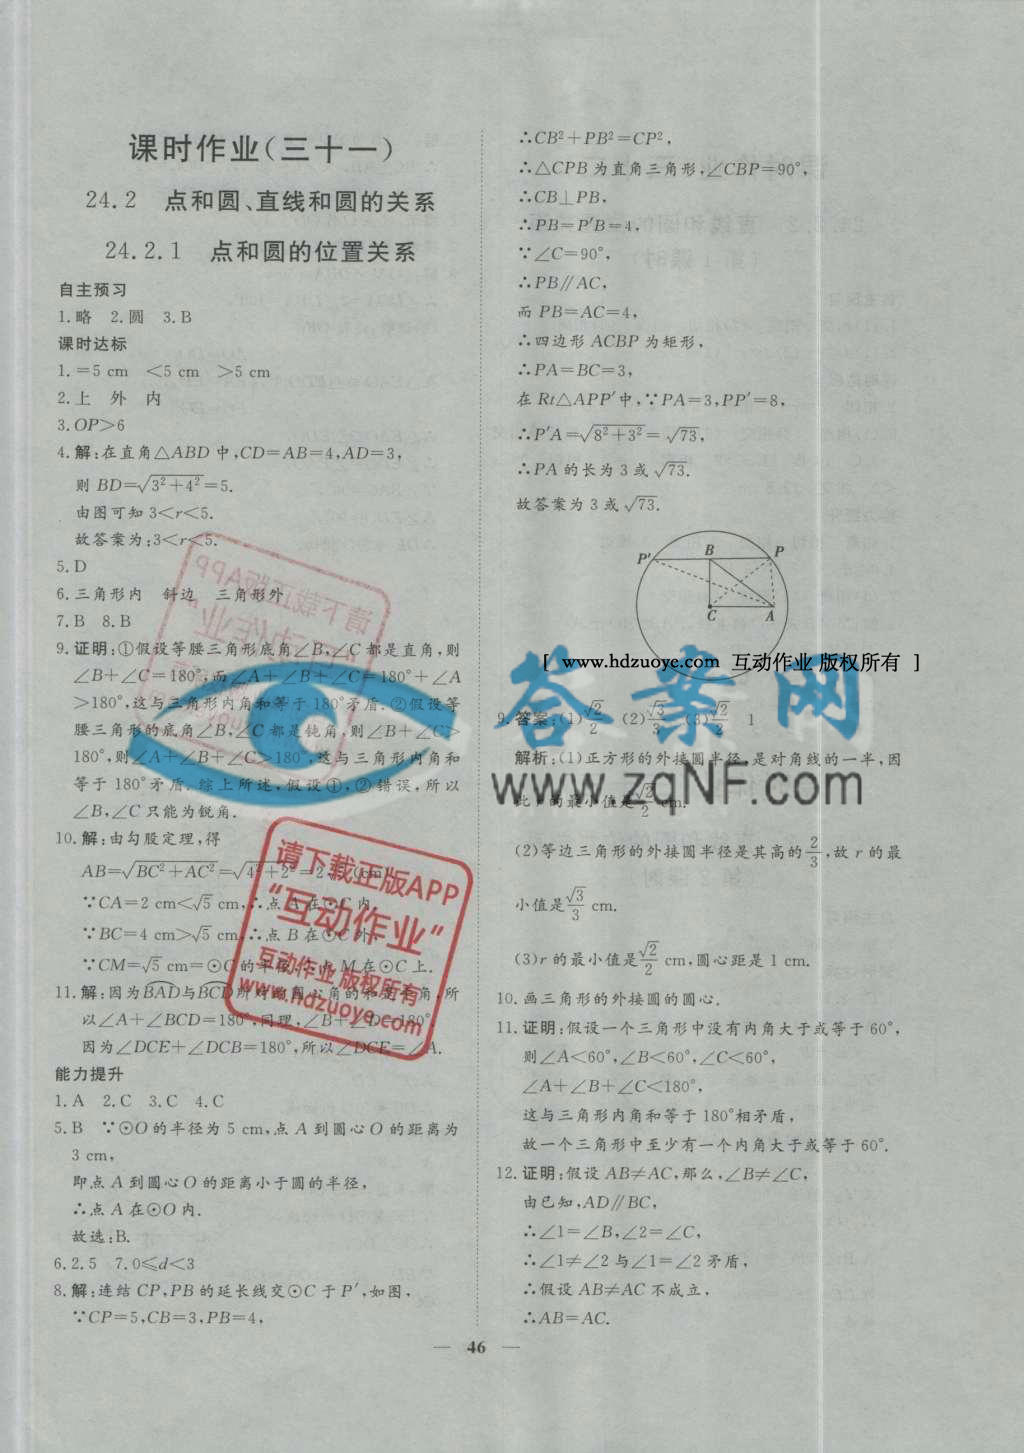 课时作业(三十一)
24.2 点和圆、直线和圆的关系
24.2.1 点和圆的位置关系
自主预习
1.略 2.圆 3.B
课时达标
1.=5 cm <5 cm >5 cm
2.上 外 内
3.OP>6
4.解:在直角△ABD中,CD=AB=4,AD=3,
则 BD=√(3²+4²)=5.
由图可知 3<r<5.
故答案为:3<r<5.
5.D
6.三角形内 斜边 三角形外
7.B 8.B
9.证明:①假设等腰三角形底角∠B,∠C都是直角,则
∠B+∠C=180°,而∠A+∠B+∠C=180°+∠A
>180°,这与三角形内角和等于180°矛盾.②假设等
腰三角形的底角∠B,∠C都是钝角,则∠B+∠C>
180°,则∠A+∠B+∠C>180°,这与三角形内角和
等于180°矛盾.综上所述,假设①,②错误,所以
∠B,∠C只能为锐角.
10.解:由勾股定理,得
AB=√(BC²+AC²)=√(4²+2²)=2
∵CA=2 cm<√5 cm,∴点A在⊙C内.
∵BC=4 cm>√5 cm,∴点B在⊙C外.
∵CM=√5 cm=⊙C的半径,∴点M在⊙C上.
11.解:因为BAD与BCD所对的圆心角的和是周角,所
以∠A+∠BCD=180°,同理,∠B+∠D=180°.
因为∠DCE+∠DCB=180°,所以∠DCE=∠A.
能力提升
1.A 2.C 3.C 4.C
5.B ∵⊙O的半径为5 cm,点A到圆心O的距离为
3 cm,
即点A到圆心O的距离小于圆的半径,
∴点A在⊙O内.
故选:B.
6.2.5 7.0≤d<3
8.解:连结CP,PB的延长线交⊙C于P′,如图,
∵CP=5,CB=3,PB=4,
∴CB²+PB²=CP²,
∴△CPB为直角三角形,∠CBP=90°,
∴CB⊥PB,
∴PB=P′B=4,
∵∠C=90°,
∴PB∥AC,
而 PB=AC=4,
∴四边形ACBP为矩形,
∴PA=BC=3,
在Rt△APP′中,∵PA=3,PP′=8,
∴P′A=√(8²+3²)=√73,
∴PA的长为3或√73.
故答案为3或√73.
P′ B P
C A
[ www.hdzuoye.com 互动作业 版权所有 ]
9.答案:(1)√2/2 (2)√3/3 (3)√2/2 1
解析:(1)正方形的外接圆半径,是对角线的一半,因
此r的最小值是√2/2 cm.
(2)等边三角形的外接圆半径是其高的2/3,故r的最
小值是√3/3 cm.
(3)r的最小值是√2/2 cm,圆心距是1 cm.
10.画三角形的外接圆的圆心.
11.证明:假设一个三角形中没有内角大于或等于60°,
则∠A<60°,∠B<60°,∠C<60°,
∠A+∠B+∠C<180°,
这与三角形内角和等于180°相矛盾,
故一个三角形中至少有一个内角大于或等于60°.
12.证明:假设AB≠AC,那么,∠B≠∠C,
由已知,AD∥BC,
∴∠1=∠B,∠2=∠C,
∴∠1≠∠2与∠1=∠2矛盾,
∴假设AB≠AC不成立,
∴AB=AC.
46
答案网
www.zqNF.com
请下载正版APP
“互动作业”
互动作业 版权所有
www.hdzuoye.com
请下载正版APP